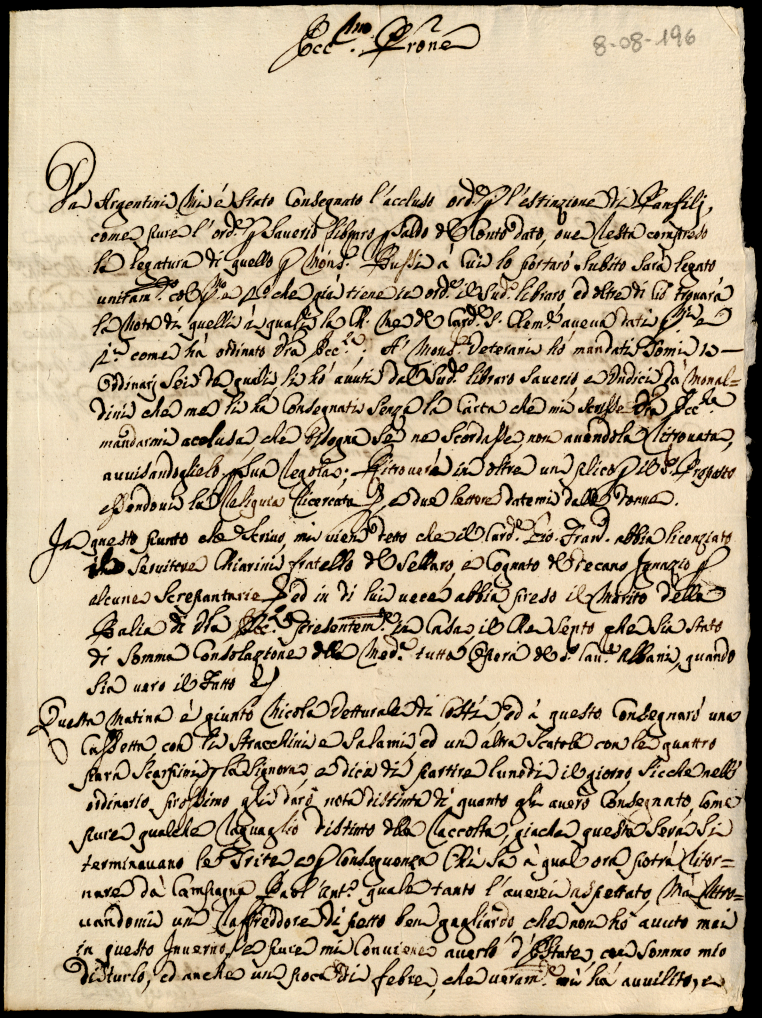 8-08-196
Ecc.mo P̃rone
Da Argentini mi è stato Consegnato l'accluso ord.e p l'estinzione di Panfilj,
come pure l'ord.e p Saverio libraro p saldo del Conto dato, ove resta compreso
la legatura di quello p Mons.r Bussi a cui lo portarò subito sarà legato
unitam.te che già tiene in ord.e il sud.o libraro, ed oltre di ciò trovarà
la nota di quelli à quali la Ch. Me. del Card. S. Clem.te aveva dati
come hà ordinato Vra Ecc.za; A' Mons.r Veterani hò mandati Tomi 10
ordinarj sei de quali li hò avuti dal sud.o libraro Saverio e undici da Monal=
dini che me li hà Consegnati senza la Carta che mi scrisse Vra Ecc.za
mandarmi acclusa che bisogna se ne scordasse, non avendola ritrovata,
avvisandoglielo p sua regola; Ritroverà in oltre un plico p il S.r Proposto
essendovi la Reliquia ricercata, e due lettere datemi dalle Donne.
In questo punto che scrivo, mi vien detto che il Card. Gio. Fran.co abbia licenziato
il Servitore Chiarini fratello del Sellaro e Cognato del Decano Ignazio p
alcune screpantarie, ed in di lui vece abbia preso il Marito della
Balia di Vra Ecc.za presentem.te in Casa, il che sento che sia stato
di somma Consolazione della Med.a tutta opera del S.r Cav.re Albani, quando
sia vero il tutto
Questa matina è giunto Nicola Vetturale di Costì, ed à questo Consegnarò una
Cassetta con li Stracchini e Salami, ed un altra Scatola con le quattro
para Scarpini p la Signora, e dice di partire lunedi il giorno, sicche nell'
ordinario prossimo gli darò nota distinta di quanto gli averò Consegnato, come
pure qualche raguaglio distinto della raccolta, giache questa sera si
terminavano le Trite e p Conseguenza Chi sà à qual ora potrà ritor=
nare da Campagna Paol'Ant.o quale tanto l'averei aspettato, Mà ritro=
vandomi un raffreddore di petto ben gagliardo che non hò avuto mai
in questo Inverno, e pure mi conviene averlo d'Estate, con sommo mio
disturbo, ed anche un poca di febre, che veram.te mi hà avvilito, e